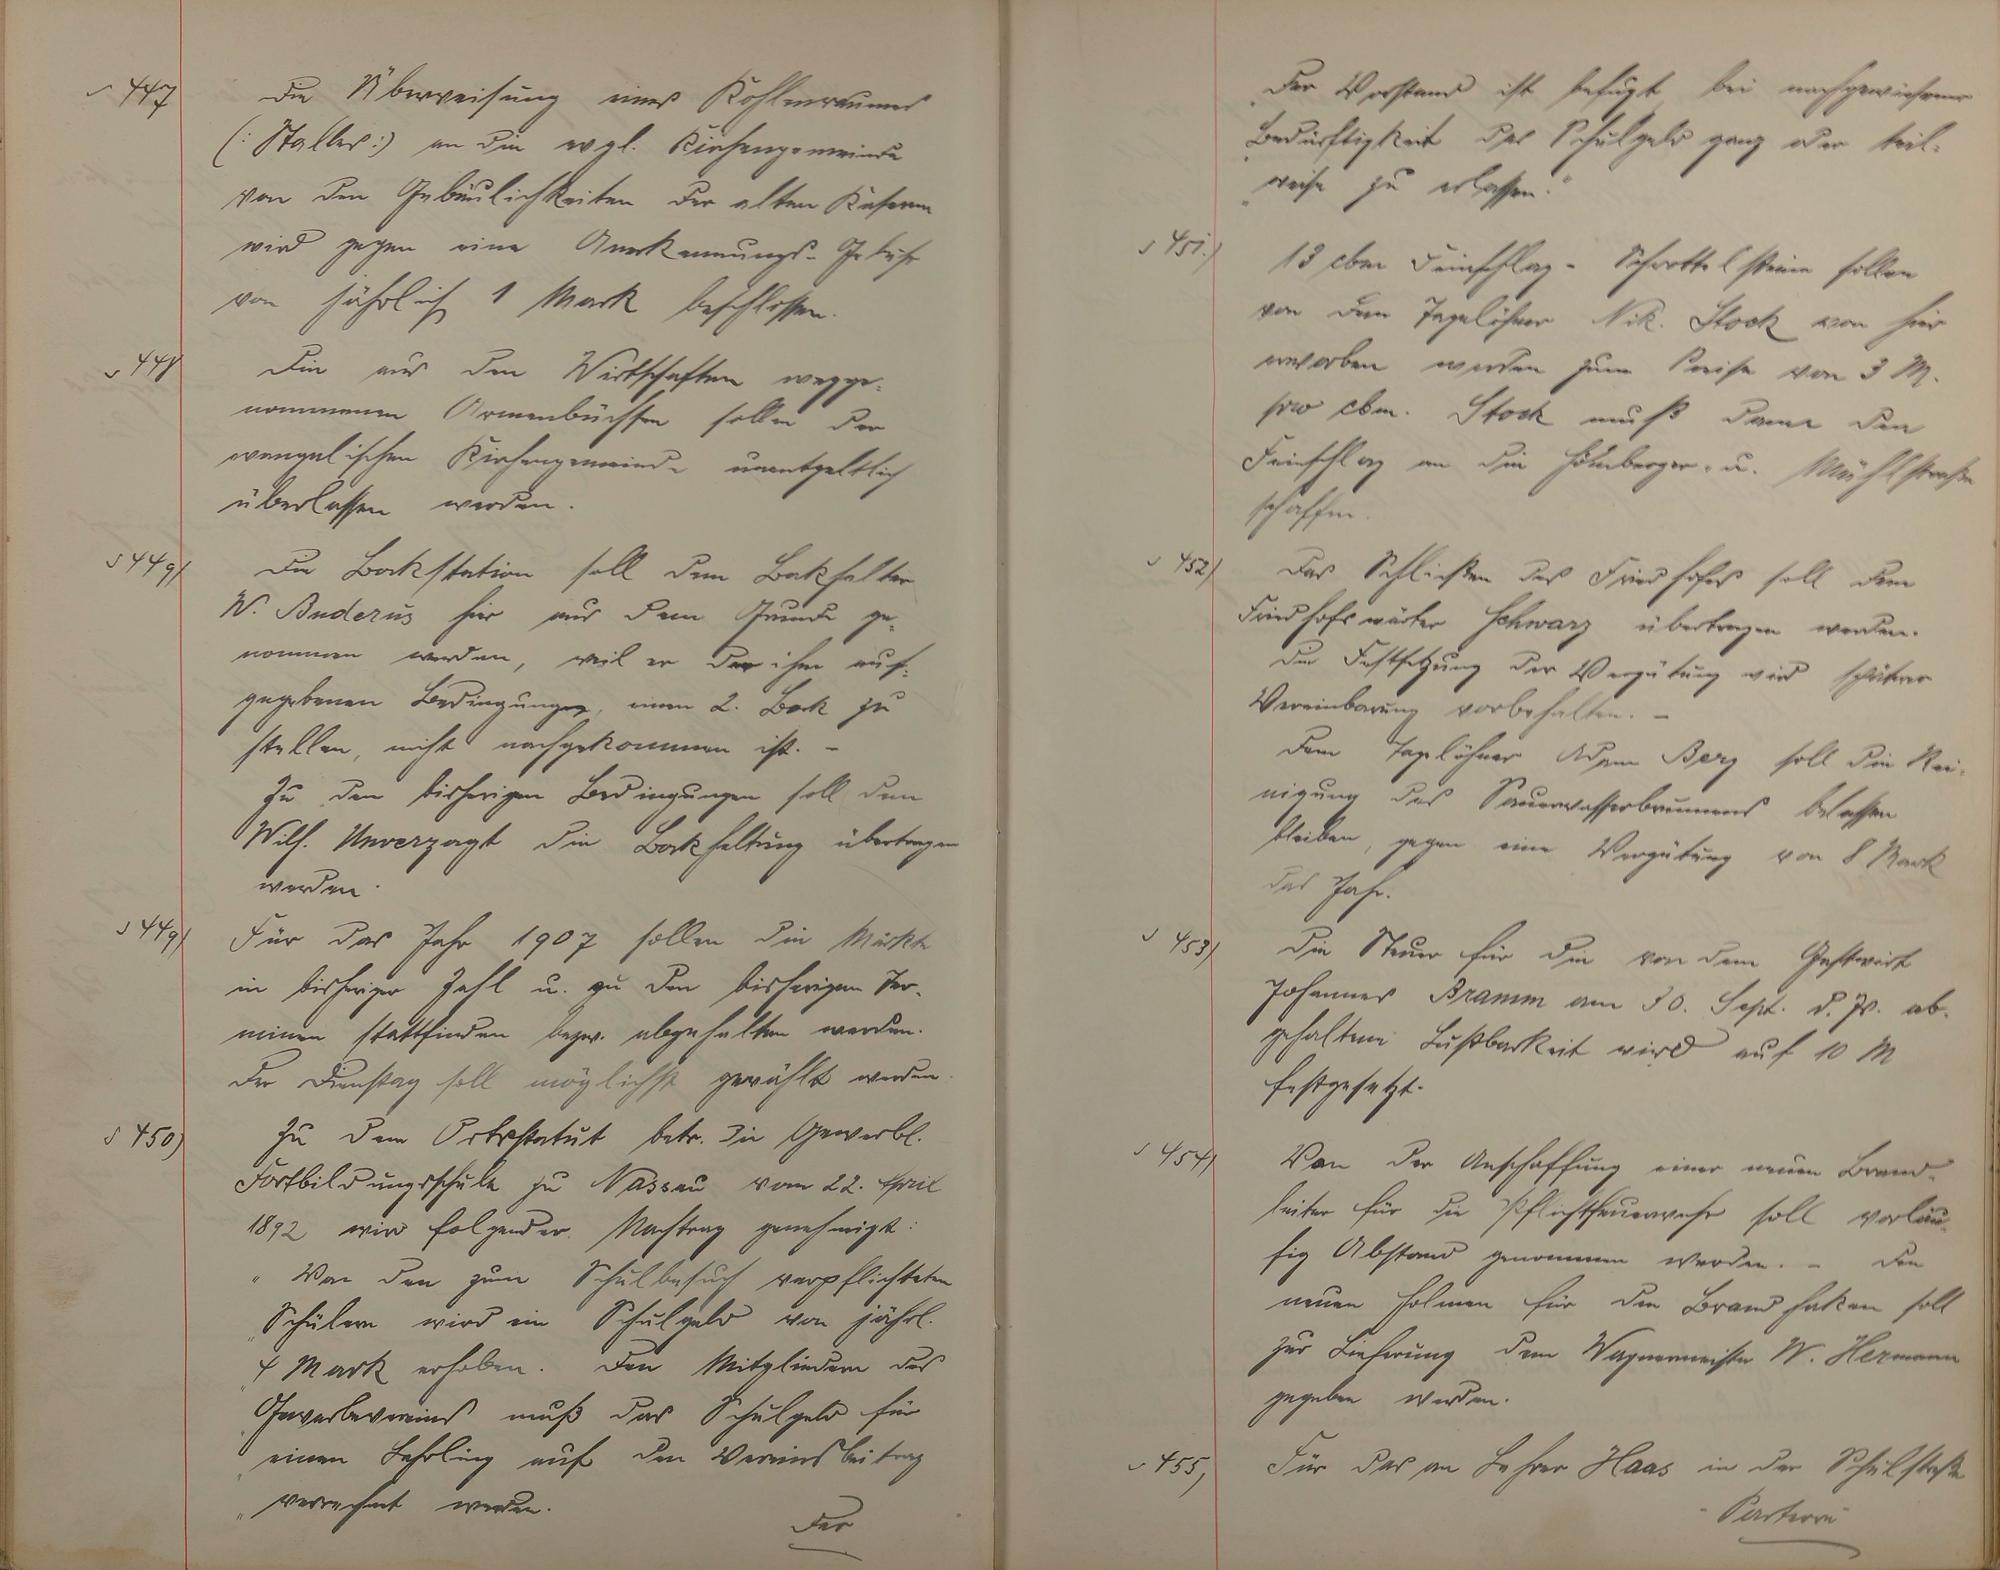 § 447
Die Überweisung eines Kohlenraumes
(: Stalles :) an die evgl. Kirchengemeinde
von den Gebäulichkeiten der alten Kaserne
wird gegen eine Anerkennungs-Gebühr
von jährlich 1 Mark beschlossen.
§ 448
Die aus den Wirtschaften wegge-
nommenen Armenbüchsen sollen der
evangelischen Kirchengemeinde unentgeltlich
überlassen werden.
§ 449)
Die Bockstation soll dem Bockhalter
W. Buderus hier aus dem Grunde ge-
nommen werden, weil er der ihm auf-
gegebenen Bedingungen, einen 2. Bock zu
stellen, nicht nachgekommen ist. –
Zu den bisherigen Bedingungen soll dem
Wilh. Unverzagt die Bockhaltung übertragen
werden.
§ 449)
Für das Jahr 1907 sollen die Märkte
in bisheriger Zahl u. zu den bisherigen Ter-
minen stattfinden bezw. abgehalten werden.
Der Dienstag soll möglichst gewählt werden.
§ 450)
Zu dem Ortsstatut betr. die Gewerbl.
Fortbildungsschule zu Nassau vom 22. April
1892 wird folgender Nachtrag genehmigt:
" Von den zum Schulbesuch verpflichteten
" Schülern wird ein Schulgeld von jährl.
" 4 Mark erhoben. Den Mitgliedern des
" Gewerbevereins muß das Schulgeld für
" einen Lehrling auf den Vereinsbeitrag
" verrechnet werden.
Der
" Der Vorstand ist befugt bei nachgewiesener
" Bedürftigkeit das Schulgeld ganz oder teil-
" weise zu erlassen."
§ 451.)
13 cbm Feinschlag- Schottelsteine sollen
von dem Tagelöhner Nik. Stock von hier
erworben werden zum Preise von 3 M.
pro cbm. Stock muß dann den
Feinschlag an die Hömberger- u. Mühlstraße
schaffen.
§ 452)
Das Schließen des Friedhofes soll dem
Friedhofswärter Schwarz übertragen werden.
Die Festsetzung der Vergütung wird späterer
Vereinbarung vorbehalten. –
Dem Taglöhner Adam Berg soll die Rei-
nigung des Sauerwasserbrunnens belassen
bleiben, gegen eine Vergütung von 8 Mark
das Jahr.
§ 453)
Die Steuer für die von dem Gastwirt
Johannes Bramm am 30. Sept. d. Js. ab-
gehaltene Lustbarkeit wird auf 10 M
festgesetzt.
§ 454)
Von der Anschaffung einer neuen Brand-
leiter für die Pflichtfeuerwehr soll vorläu-
fig Abstand genommen werden. – Den
neuen Holmen für den Brandhaken soll
zur Lieferung dem Wagnermeister W. Hermann
gegeben werden.
§ 455)
Für das an Lehrer Haas in der Schulstraße
- Parterre